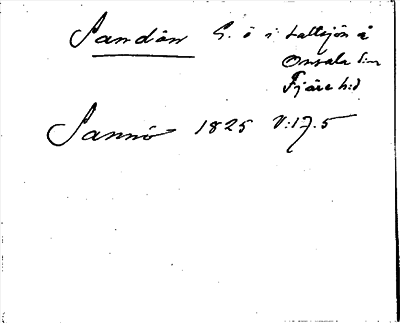 Sandön G. ö i Lallsjön å
Onsala sn
Fjäre hd
Sannö 1825 V:17.5